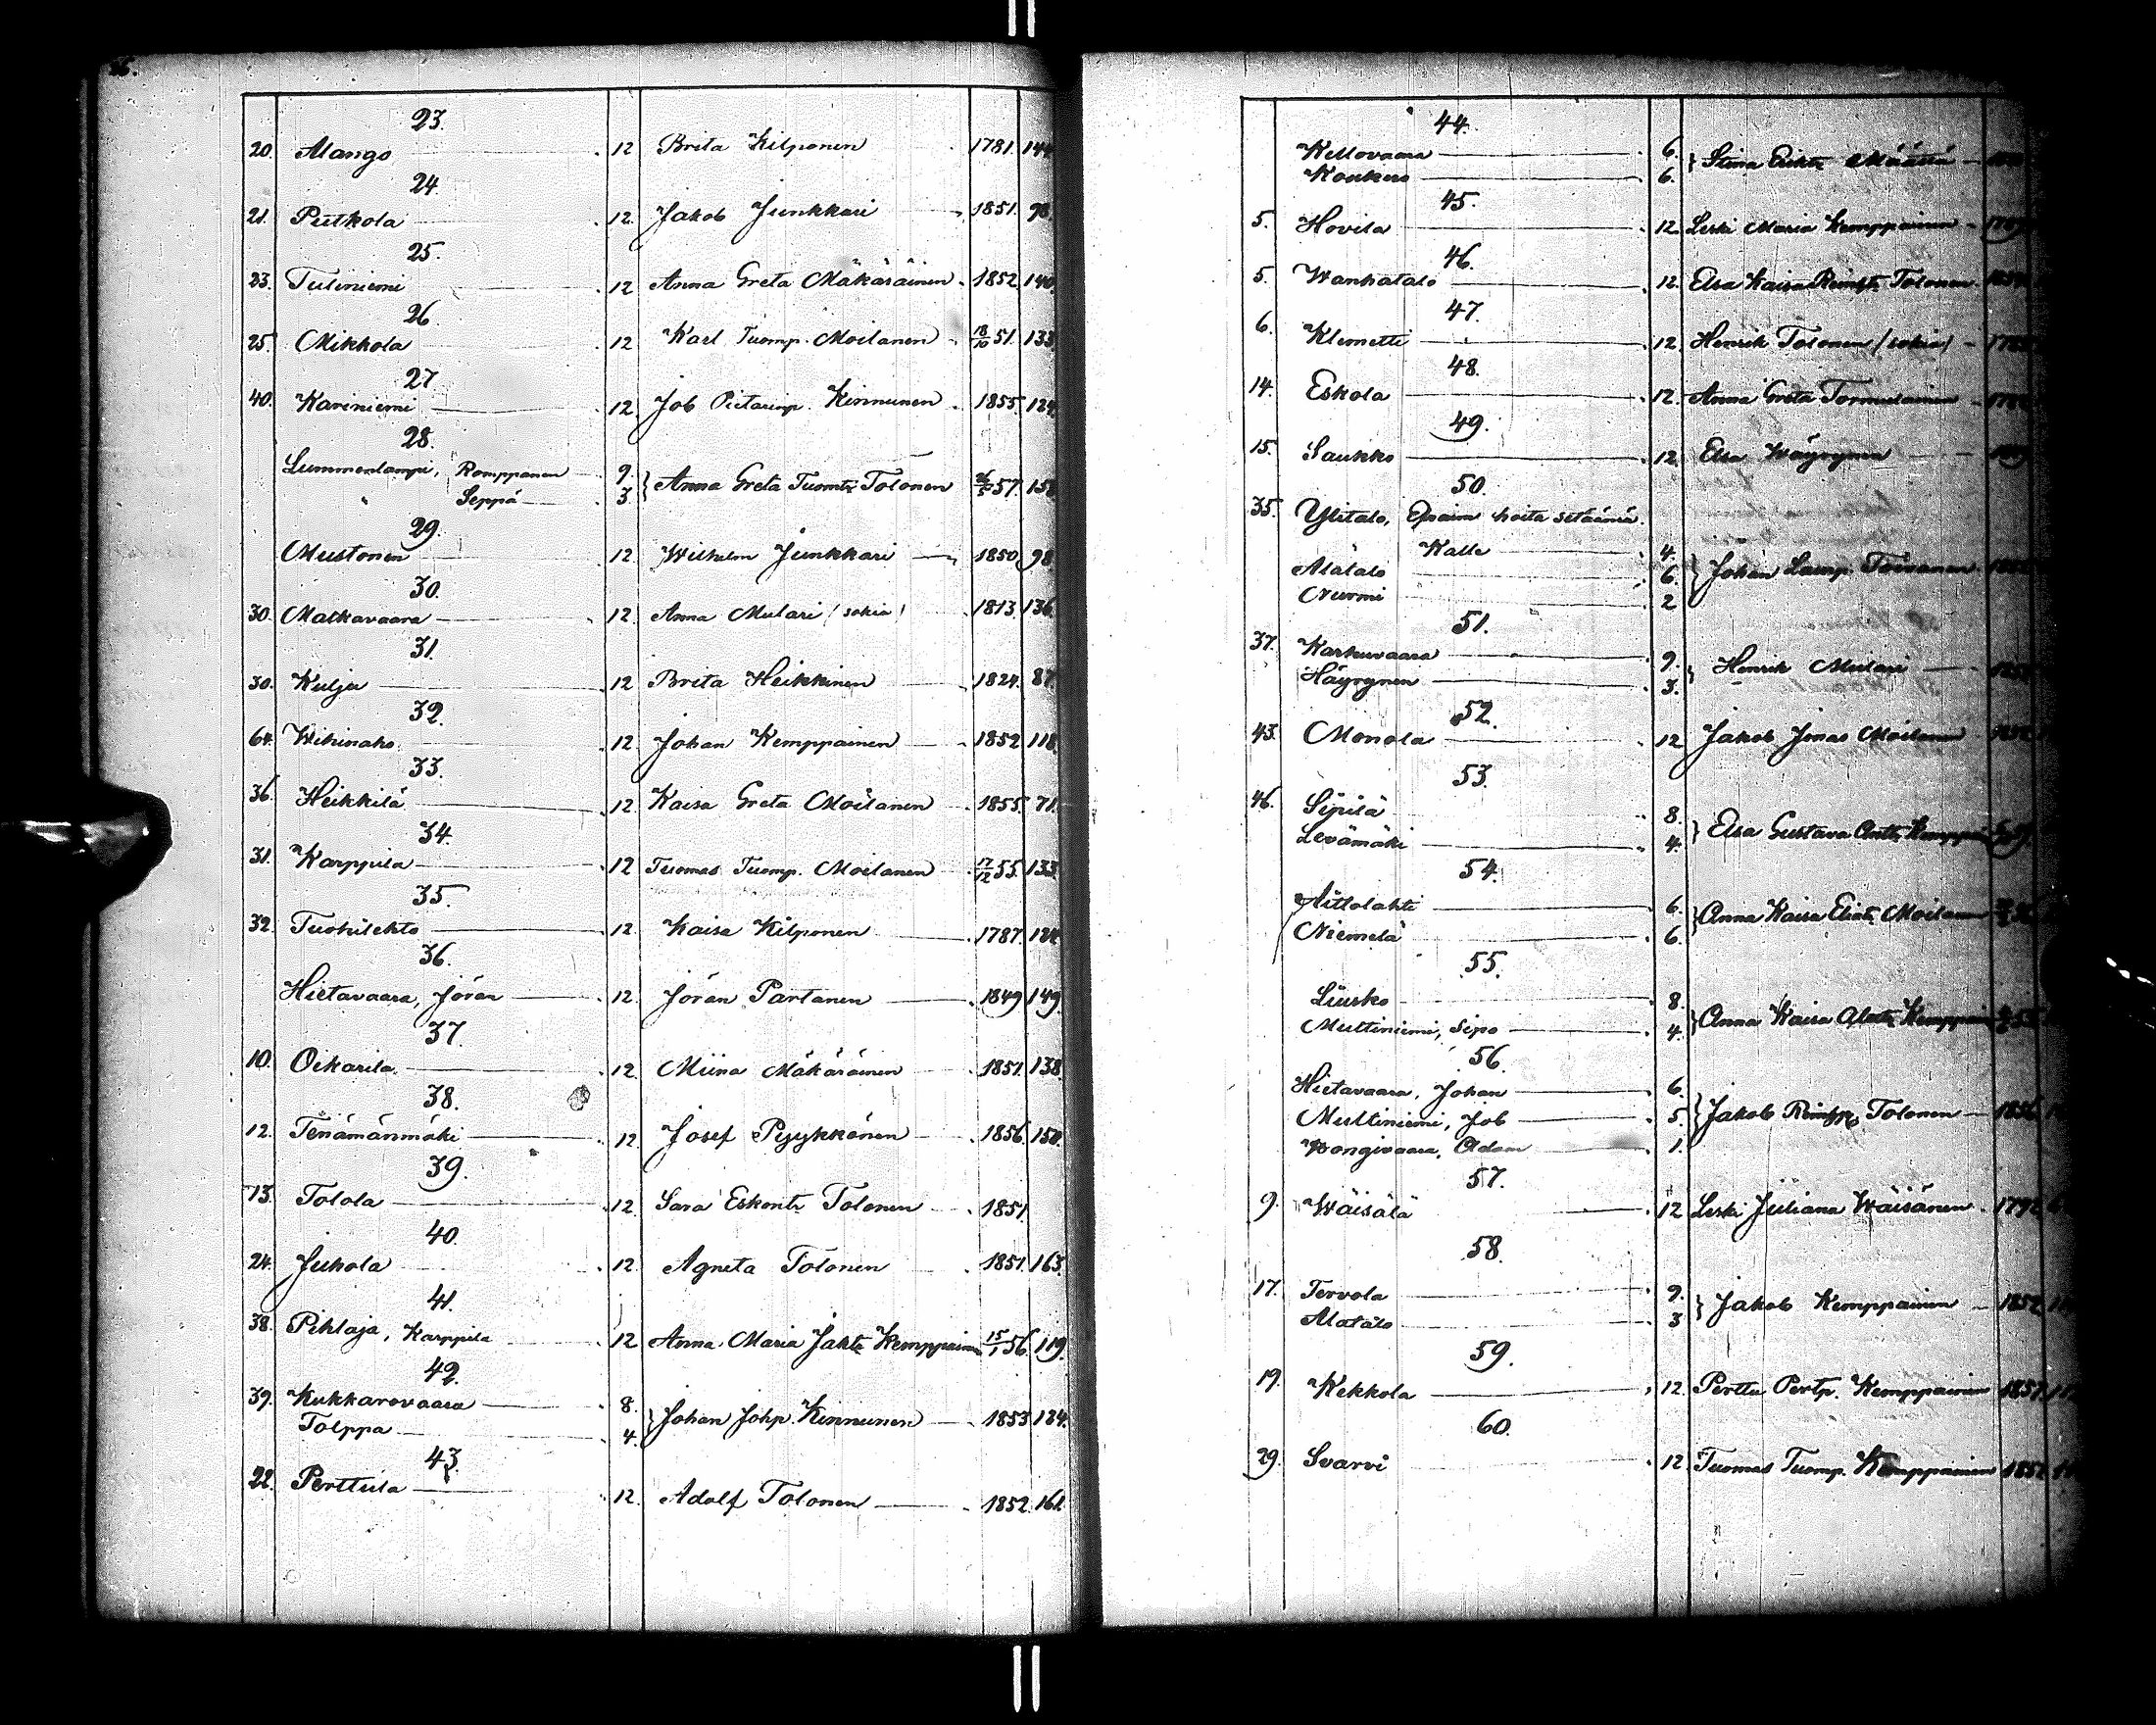 23.
20. Alango 12 Brita Kilponen 1781. 144
24.
21. Putkola 12. Jakob Junkkari 1851. 98.
25.
23. Tuliniemi 12 Anna Greta Mäkäräinen 1852. 140.
26.
25. Mikkola 12 Karl Tuomp. Moilanen 18/10 51. 133.
27
40. Kariniemi 12. Job Pietarinp. Kinnunen 1855 124.
28.
Lummenlampi, Romppanen 9.
" Seppä 3 } Anna Greta Tuomtr Tolonen 57. 158
29.
Mustonen 12. Wilhelm Junkkari 1850. 98
30.
30. Matkavaara 12. Anna Mulari (sokia) 1813. 136.
31.
30. Kulju 12 Brita Heikkinen 1824. 87.
32.
64. Wihinaho 12. Johan Kemppainen 1852. 118.
33.
36. Heikkilä 12 Kaisa Greta Moilanen 1855. 71.
34.
31. Karppila 12 Tuomas Tuomp. Moilanen 12/12 55. 133.
35.
32. Tuohilehto 12. Kaisa Kilponen 1787. 124
36.
Hietavaara, Jöran 12. Jöran Partanen 1849 149.
37.
10. Oikarila 12. Miina Mäkäräinen 1851. 138.
38.
12. Tenämänmäki 12. Josef Pyykkönen 1856. 150.
39.
13. Tolola 12. Sara Eskontr Tolonen 1851.
40.
24. Juhola 12. Agneta Tolonen 1851. 163.
41.
38. Pihlaja, Karppila 12 Anna Maria Jaktr Kemppainen 15/1 56. 119.
42.
39. Kukkarovaara 8.
Tolppa 4. } Johan Johp. Kinnunen 1853. 124.
43.
22. Perttula 12. Adolf Tolonen 1852. 161.
44.
Kellovaara 6.
Koukero 6. } Stina Erikstr Määttä
45.
5. Hovila 12. Leski Maria Kemppainen
46.
5. Wanhatalo 12. Elsa Kaisa Reinstr Tolonen
47.
6. Klemetti 12. Henrik Tolonen (sokia)
48.
14. Eskola 12. Anna Greta Tormulainen
49.
15. Saukko 12. Elsa Wäyrynen
50.
35. Ylitalo, Epaim hoita setäänsä.
Kalle 4.
Alatalo 6.
Nurmi 2 } Johan Laurip. Toivanen
51.
37. Karhuvaara 9.
Häyrynen 3. } Henrik Mulari
52.
43. Monola 12 Jakob Jonas Moilanen
53.
46. Sipilä 8.
Levämäki 4. } Elsa Gustava Anttr Kemppai
54.
Aittolahti 6.
Niemelä 6. } Anna Kaisa Eliastr Moilanen
55.
Liusko 8.
Multiniemi, Sipo 4. } Anna Kaisa Kemppainen
56.
Hietavaara, Johan 6.
Multiniemi, Job 5.
Wongivaara, Adam 1. } Jakob Reinhp. Tolonen 1856.
57.
9. Wäisälä 12 Leski Juliana Wäisänen 1792
58.
17. Tervola 9.
Alatalo 3 } Jakob Kemppainen 1852.
59.
19. Kekkola 12. Perttu Pertp. Kemppainen 1851.
60.
29. Svarvi 12. Tuomas Tuomp. Kemppainen 1852.